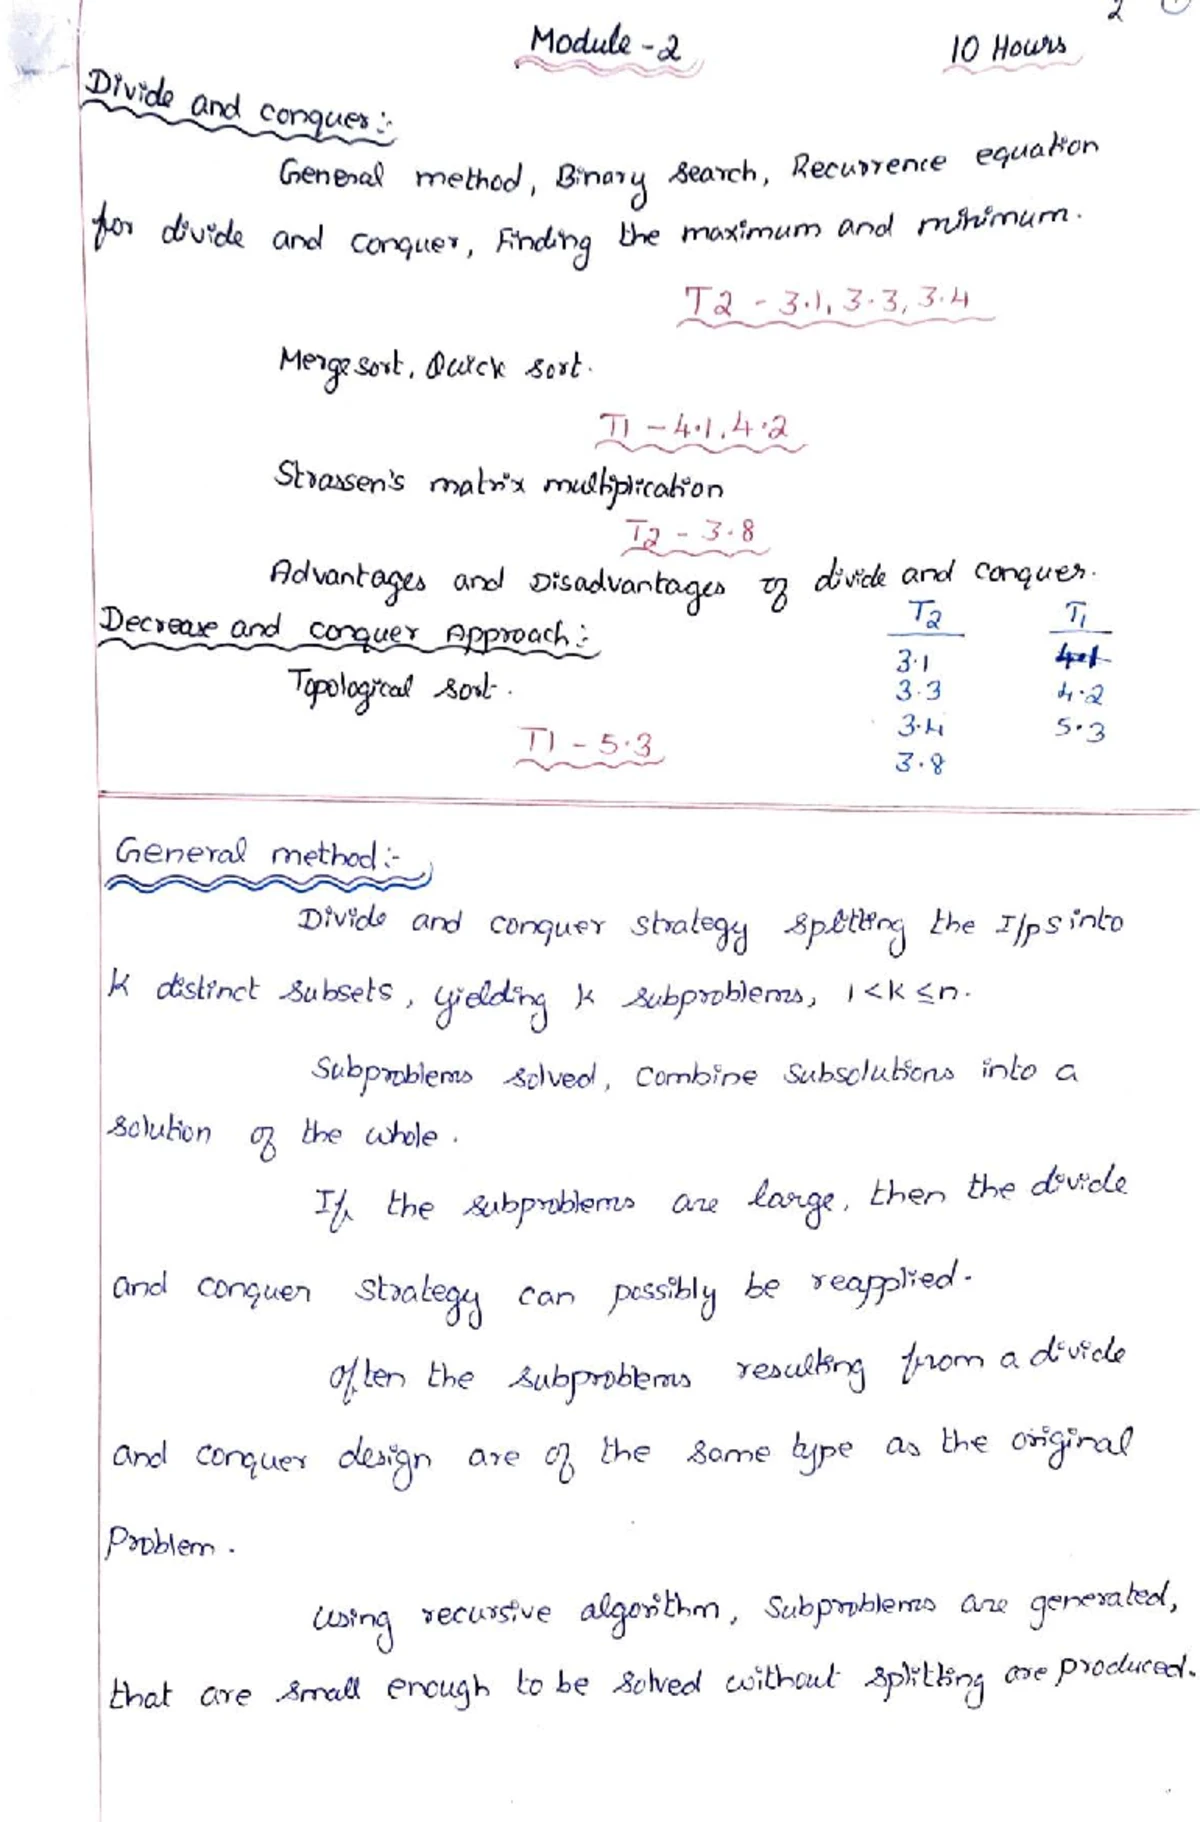 2
Module-2 10 Hours
Divide and conquer:-
General method, Binary search, Recurrence equation
for divide and conquer, Finding the maximum and minimum.
T2 - 3.1, 3.3, 3.4
Merge sort, Quick sort.
T1 - 4.1, 4.2
Strassen's matrix multiplication
T2 - 3.8
Advantages and Disadvantages of divide and conquer.
Decrease and conquer Approach:-
Topological sort.
T1 - 5.3
T2 T1
3.1 4.1
3.3 4.2
3.4 5.3
3.8
General method:-
Divide and conquer strategy splitting the I/ps into
k distinct subsets, yielding k subproblems, 1<k≤n.
Subproblems solved, combine subsolutions into a
solution of the whole.
If the subproblems are large, then the divide
and conquer strategy can possibly be reapplied.
Often the subproblems resulting from a divide
and conquer design are of the same type as the original
Problem.
Using recursive algorithm, Subproblems are generated,
that are small enough to be solved without splitting are produced.